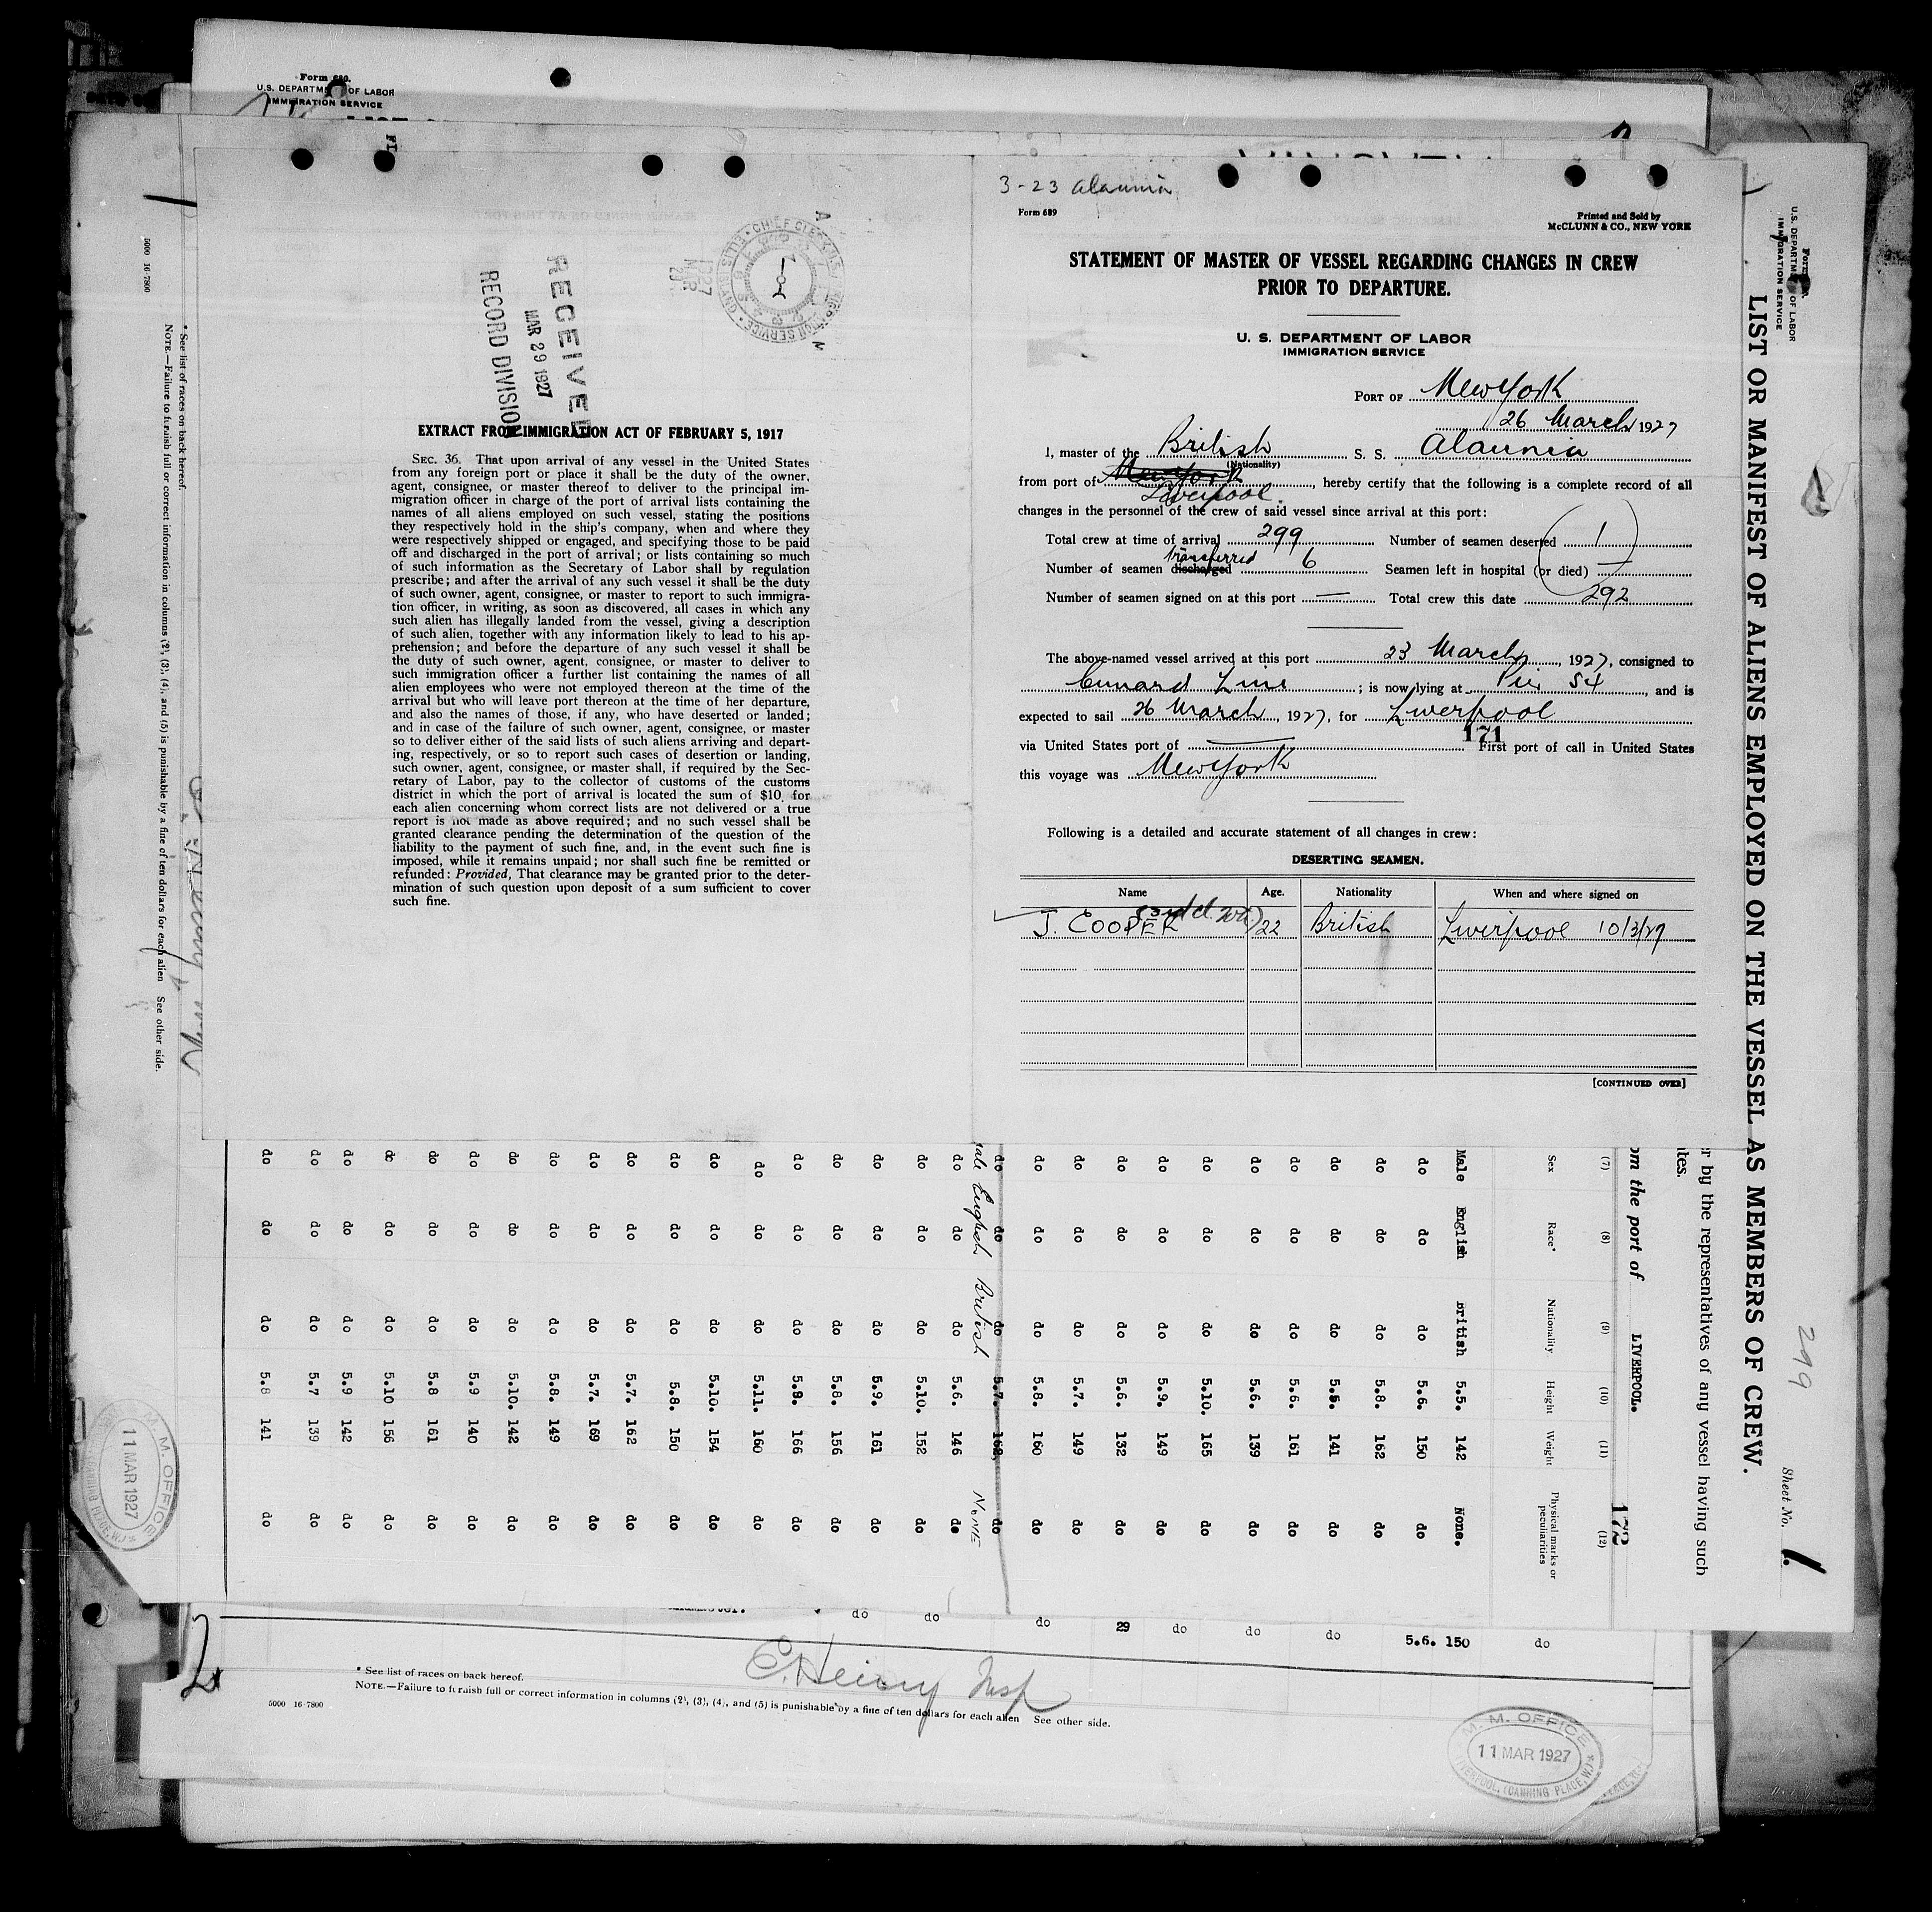 Form 680.
U.S. DEPARTMENT OF LABOR
IMMIGRATION SERVICE
3-23 Alaunia
Form 689
Printed and Sold by
McCLUNN & CO., NEW YORK
STATEMENT OF MASTER OF VESSEL REGARDING CHANGES IN CREW
PRIOR TO DEPARTURE.
U. S. DEPARTMENT OF LABOR
IMMIGRATION SERVICE
PORT OF New York
26 March 1927
I, master of the British S. S. Alaunia
(Nationality)
from port of New York Liverpool, hereby certify that the following is a complete record of all
changes in the personnel of the crew of said vessel since arrival at this port:
Total crew at time of arrival 299 Number of seamen deserted 1
Number of seamen discharged transferred 6 Seamen left in hospital (or died) —
Number of seamen signed on at this port — Total crew this date 292
The above-named vessel arrived at this port 23 March, 1927, consigned to
Cunard Line; is now lying at Pier 54, and is
expected to sail 26 March, 1927, for Liverpool
171
via United States port of — First port of call in United States
this voyage was New York
Following is a detailed and accurate statement of all changes in crew:
DESERTING SEAMEN.
Name Age. Nationality When and where signed on
J. COOPER (3rd cl. Wtr) 22 British Liverpool 10/3/27
[CONTINUED OVER]
CHIEF CLERK U.S. IMMIGRATION SERVICE ELLIS ISLAND
1927
MAR
29
RECEIVED
MAR 29 1927
RECORD DIVISION
EXTRACT FROM IMMIGRATION ACT OF FEBRUARY 5, 1917
SEC. 36. That upon arrival of any vessel in the United States
from any foreign port or place it shall be the duty of the owner,
agent, consignee, or master thereof to deliver to the principal im-
migration officer in charge of the port of arrival lists containing the
names of all aliens employed on such vessel, stating the positions
they respectively hold in the ship's company, when and where they
were respectively shipped or engaged, and specifying those to be paid
off and discharged in the port of arrival; or lists containing so much
of such information as the Secretary of Labor shall by regulation
prescribe; and after the arrival of any such vessel it shall be the duty
of such owner, agent, consignee, or master to report to such immigra-
tion officer, in writing, as soon as discovered, all cases in which any
such alien has illegally landed from the vessel, giving a description
of such alien, together with any information likely to lead to his ap-
prehension; and before the departure of any such vessel it shall be
the duty of such owner, agent, consignee, or master to deliver to
such immigration officer a further list containing the names of all
alien employees who were not employed thereon at the time of the
arrival but who will leave port thereon at the time of her departure,
and also the names of those, if any, who have deserted or landed;
and in case of the failure of such owner, agent, consignee, or master
so to deliver either of the said lists of such aliens arriving and depart-
ing, respectively, or so to report such cases of desertion or landing,
such owner, agent, consignee, or master shall, if required by the Sec-
retary of Labor, pay to the collector of customs of the customs
district in which the port of arrival is located the sum of $10 for
each alien concerning whom correct lists are not delivered or a true
report is not made as above required; and no such vessel shall be
granted clearance pending the determination of the question of the
liability to the payment of such fine, and, in the event such fine is
imposed, while it remains unpaid; nor shall such fine be remitted or
refunded: Provided, That clearance may be granted prior to the deter-
mination of such question upon deposit of a sum sufficient to cover
such fine.
U.S. DEPARTMENT OF LABOR
IMMIGRATION SERVICE
299
Sheet No. 1.
LIST OR MANIFEST OF ALIENS EMPLOYED ON THE VESSEL AS MEMBERS OF CREW.
r by the representatives of any vessel having such
ites.
om the port of LIVERPOOL.
172
(7) (8) (9) (10) (11) (12)
Sex Race* Nationality Height Weight Physical marks or peculiarities
Male English British 5.5. 142 None.
do do do 5.6. 150 do
do do do 5.8. 162 do
do do do 5.5. 141 do
do do do 5.6. 161 do
do do do 5.6. 139 do
do do do 5.10. 165 do
do do do 5.9. 149 do
do do do 5.6. 132 do
do do do 5.7. 149 do
do do do 5.8. 160 do
do do do 5.7. 168, do
male English British NONE
do do do 5.6. 146 do
do do do 5.10. 152 do
do do do 5.9. 161 do
do do do 5.8. 156 do
do do do 5.8. 166 do
do do do 5.11. 160 do
do do do 5.10. 154 do
do do do 5.8. 150 do
do do do 5.7. 162 do
do do do 5.7. 169 do
do do do 5.8. 149 do
do do do 5.10. 142 do
do do do 5.9 140 do
do do do 5.8 161 do
do do do 5.10 156 do
do do do 5.9 142 do
do do do 5.7 139 do
do do do 5.8 141 do
* See list of races on back hereof.
NOTE.—Failure to furnish full or correct information in columns (2), (3), (4), and (5) is punishable by a fine of ten dollars for each alien See other side.
5000 16-7800
M. M. OFFICE
11 MAR 1927
(CANNING PLACE, W.)
do do do 29 do do do 5.6. 150 do
E. Heiny Insp
* See list of races on back hereof.
NOTE.—Failure to furnish full or correct information in columns (2), (3), (4), and (5) is punishable by a fine of ten dollars for each alien See other side.
5000 16-7800
M. M. OFFICE
11 MAR 1927
LIVERPOOL, (CANNING PLACE, W.)